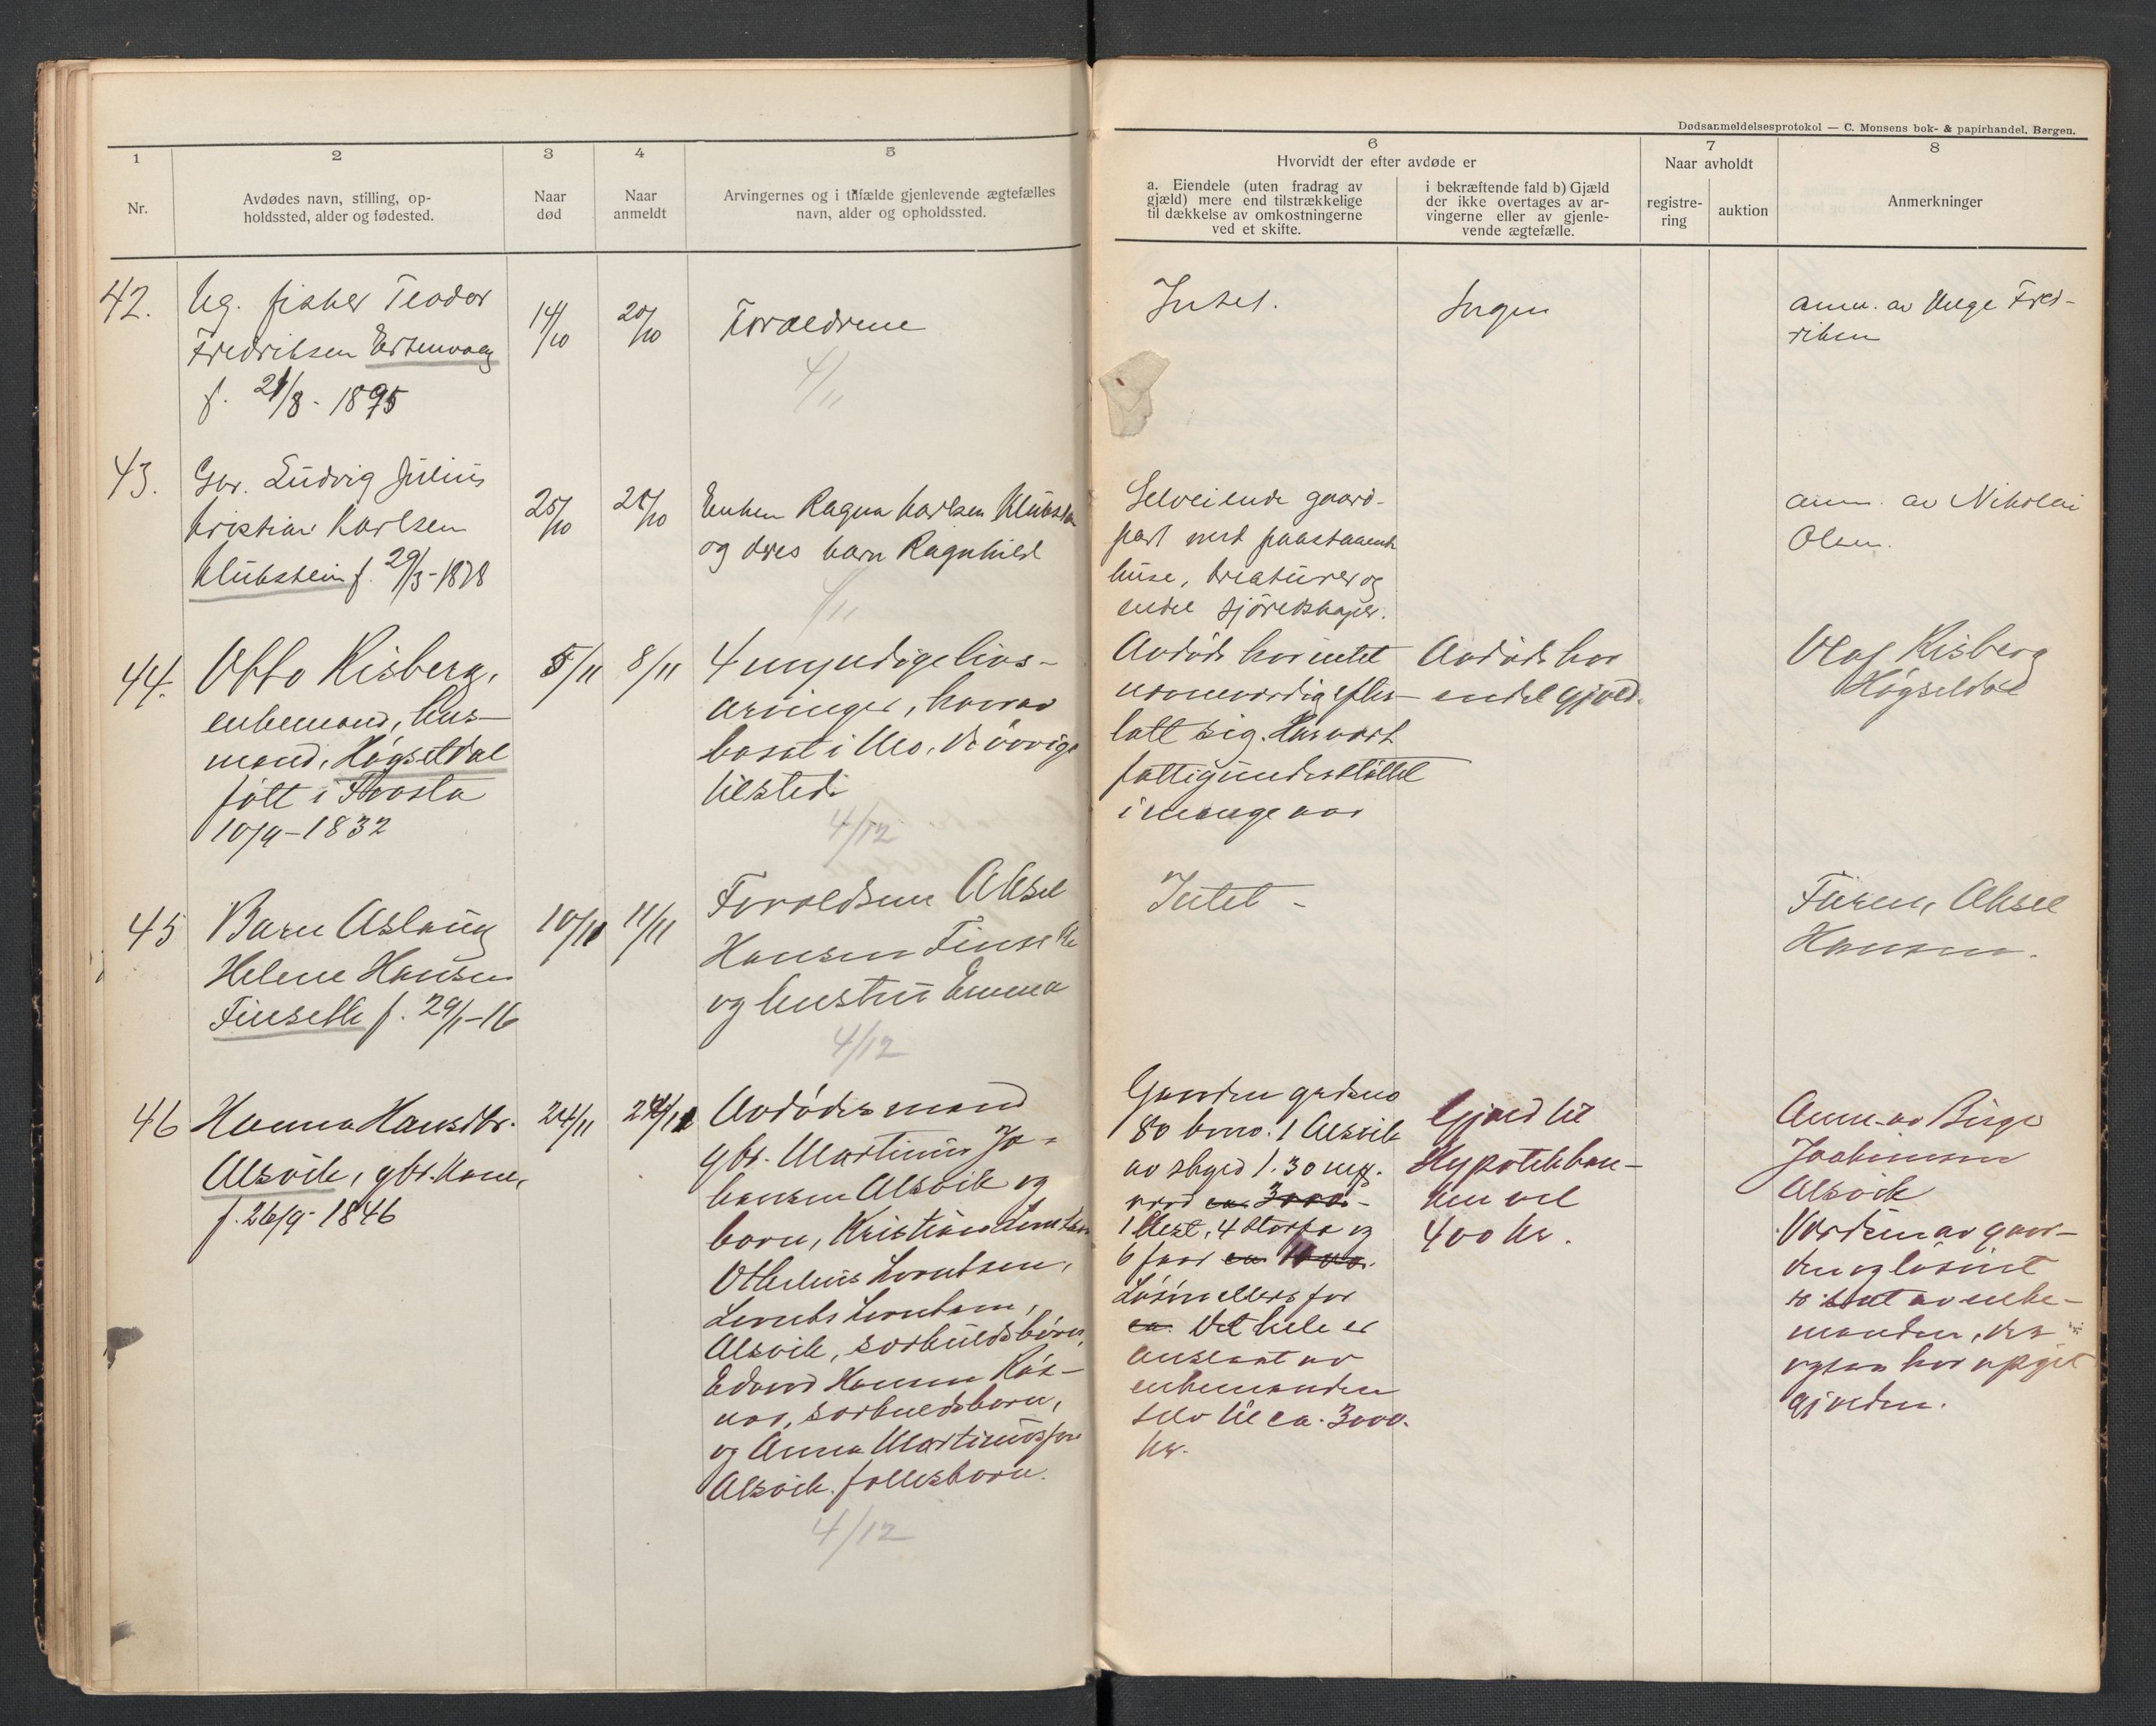 Dødsanmeldelsesprotokol — C. Monsens bok- & papirhandel, Bergen.
1
2
3
4
5
6
7
8
Nr.
Avdødes navn, stilling, op-
holdssted, alder og fødested.
Naar
død
Naar
anmeldt
Arvingernes og i tilfælde gjenlevende ægtefælles
navn, alder og opholdssted.
Hvorvidt der efter avdøde er
a. Eiendele (uten fradrag av
gjæld) mere end tilstrækkelige
til dækkelse av omkostningerne
ved et skifte.
i bekræftende fald b) Gjæld
der ikke overtages av ar-
vingerne eller av gjenle-
vende ægtefælle.
Naar avholdt
registre-
ring
auktion
Anmerkninger
42.
Ug. fisker Teodor
Fredriksen Ertenvaag
f. 21/8 - 1895
14/10
20/10
Forældrene
4/11
Intet.
Ingen
anm. av Fred-
riksen
43.
Gbr. Ludvig Julius
Kristian Karlsen
Klubstein f. 29/3-1878
25/10
28/10
Enken Ragna Karlsen
og deres barn Ragnhild
4/11
Selveiende gaard-
part med paastaaende
huse, kreaturer og
endel sjöredskaper.
anm. av Nikolai
Olsen.
44.
Otto Risberg,
enkemand, hus-
mand, Högsetdal
född i Frosta
10/9-1832
5/11
8/11
4 myndige livs-
arvinger, hvorav
bosat i Mo, de övrige
tilsted.
4/12
Avdöde har intet
nævneværdig efter-
latt sig. Har vært
fattigunderstöttet
i mange aar
Avdöde har
endel gjæld.
Olaf Risberg
Högsetdal
45
Barn Aslaug
Helene Hansen
Finsetli f. 29/1-16
10/11
11/11
Forældrene Aksel
Hansen Finsetli
og hustru Emma
4/12
Intet -
Faren, Aksel
Hansen.
46
Hanna Hansdtr.
Alsvik, gbr. kone,
f. 26/9-1846
24/11
24/11
Avdödes mand
gbr. Martinus Jo-
hansen Alsvik og
barn, Kristian
Lorentsen,
Lorents Lorentsen,
Alsvik, særkuldsbörn,
Edvard Hansen Rös-
nes, særkuldsbarn,
og Anna Martinus
Alsvik, fællesbarn.
4/12
Gaarden gardsno
80 bnro. 1 Alsvik
av skyld 1.30 mk.
værd ca. 3000 -
1 hest, 4 storfæ og
6 faar
Lösöre ellers for
ca. Det hele er
anslaat av
enkemanden
selv til ca. 3000.
kr.
Gjæld til
Hypotekban-
ken vel
400 kr.
Anm. av Birge
Joakimsen
Alsvik
Værdien av gaar-
den og lösöret
er sat av enke-
manden, der
ogsaa har opgit
gjælden.